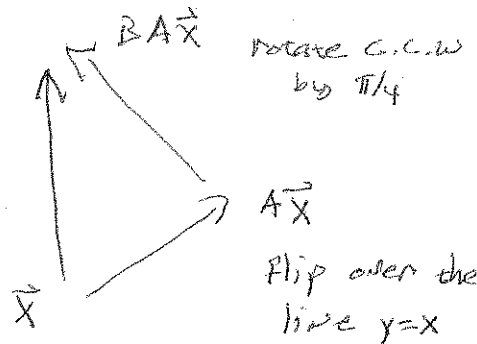 BAX⃗
rotate c.c.w
by π/4
AX⃗
flip over the
line y=x
X⃗